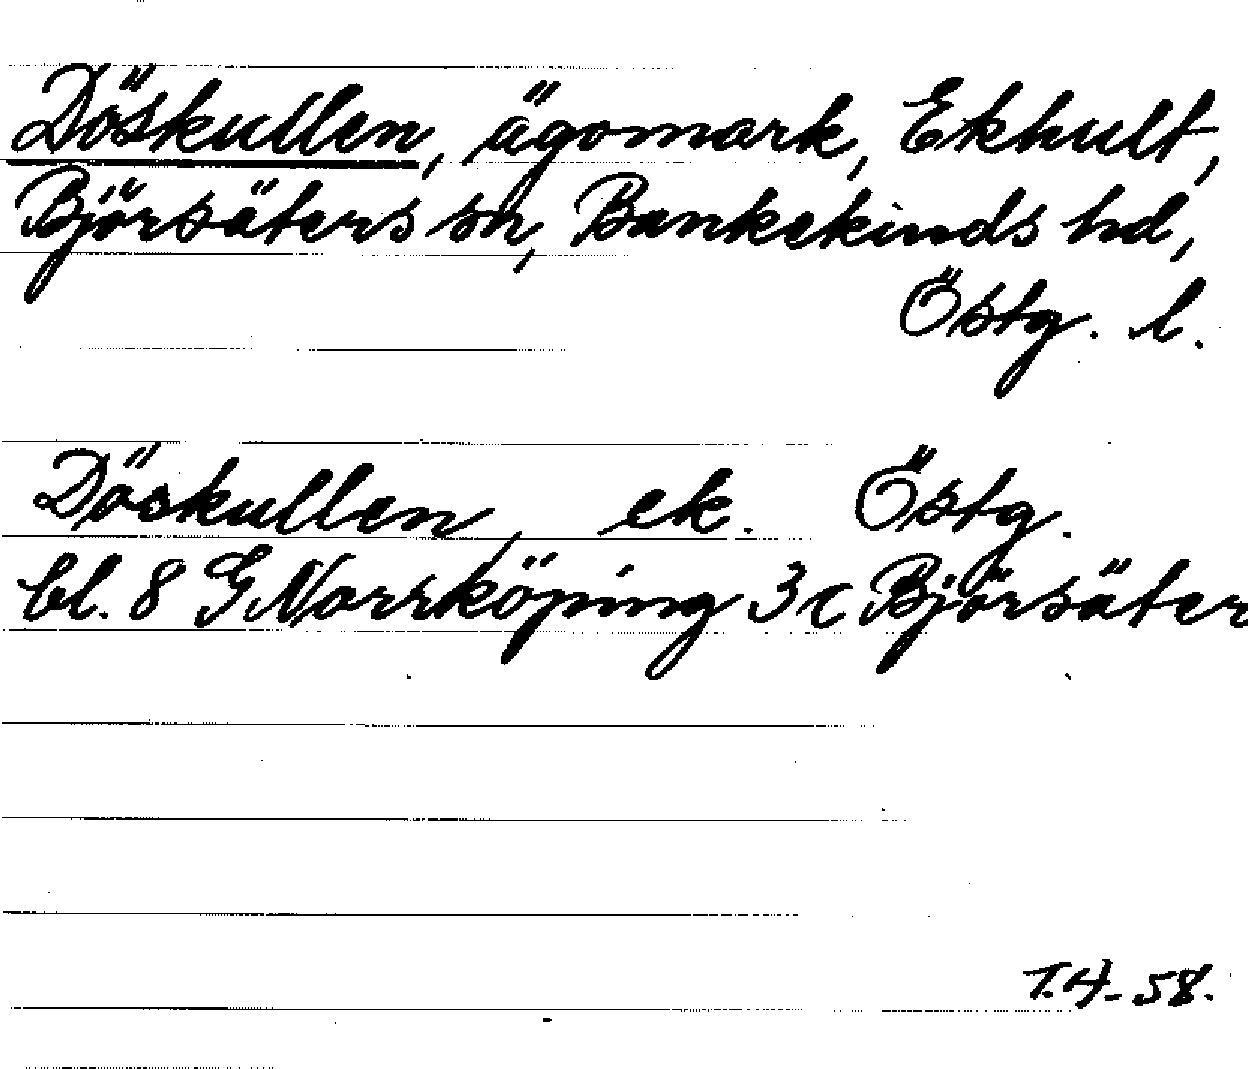 Döskullen, ägomark, Ekhult,
Björsäters sn, Bankekinds hd,
Östg. l.
Döskullen, ek. Östg.
bl. 8 G Norrköping 3c Björsäter
T.H-58.